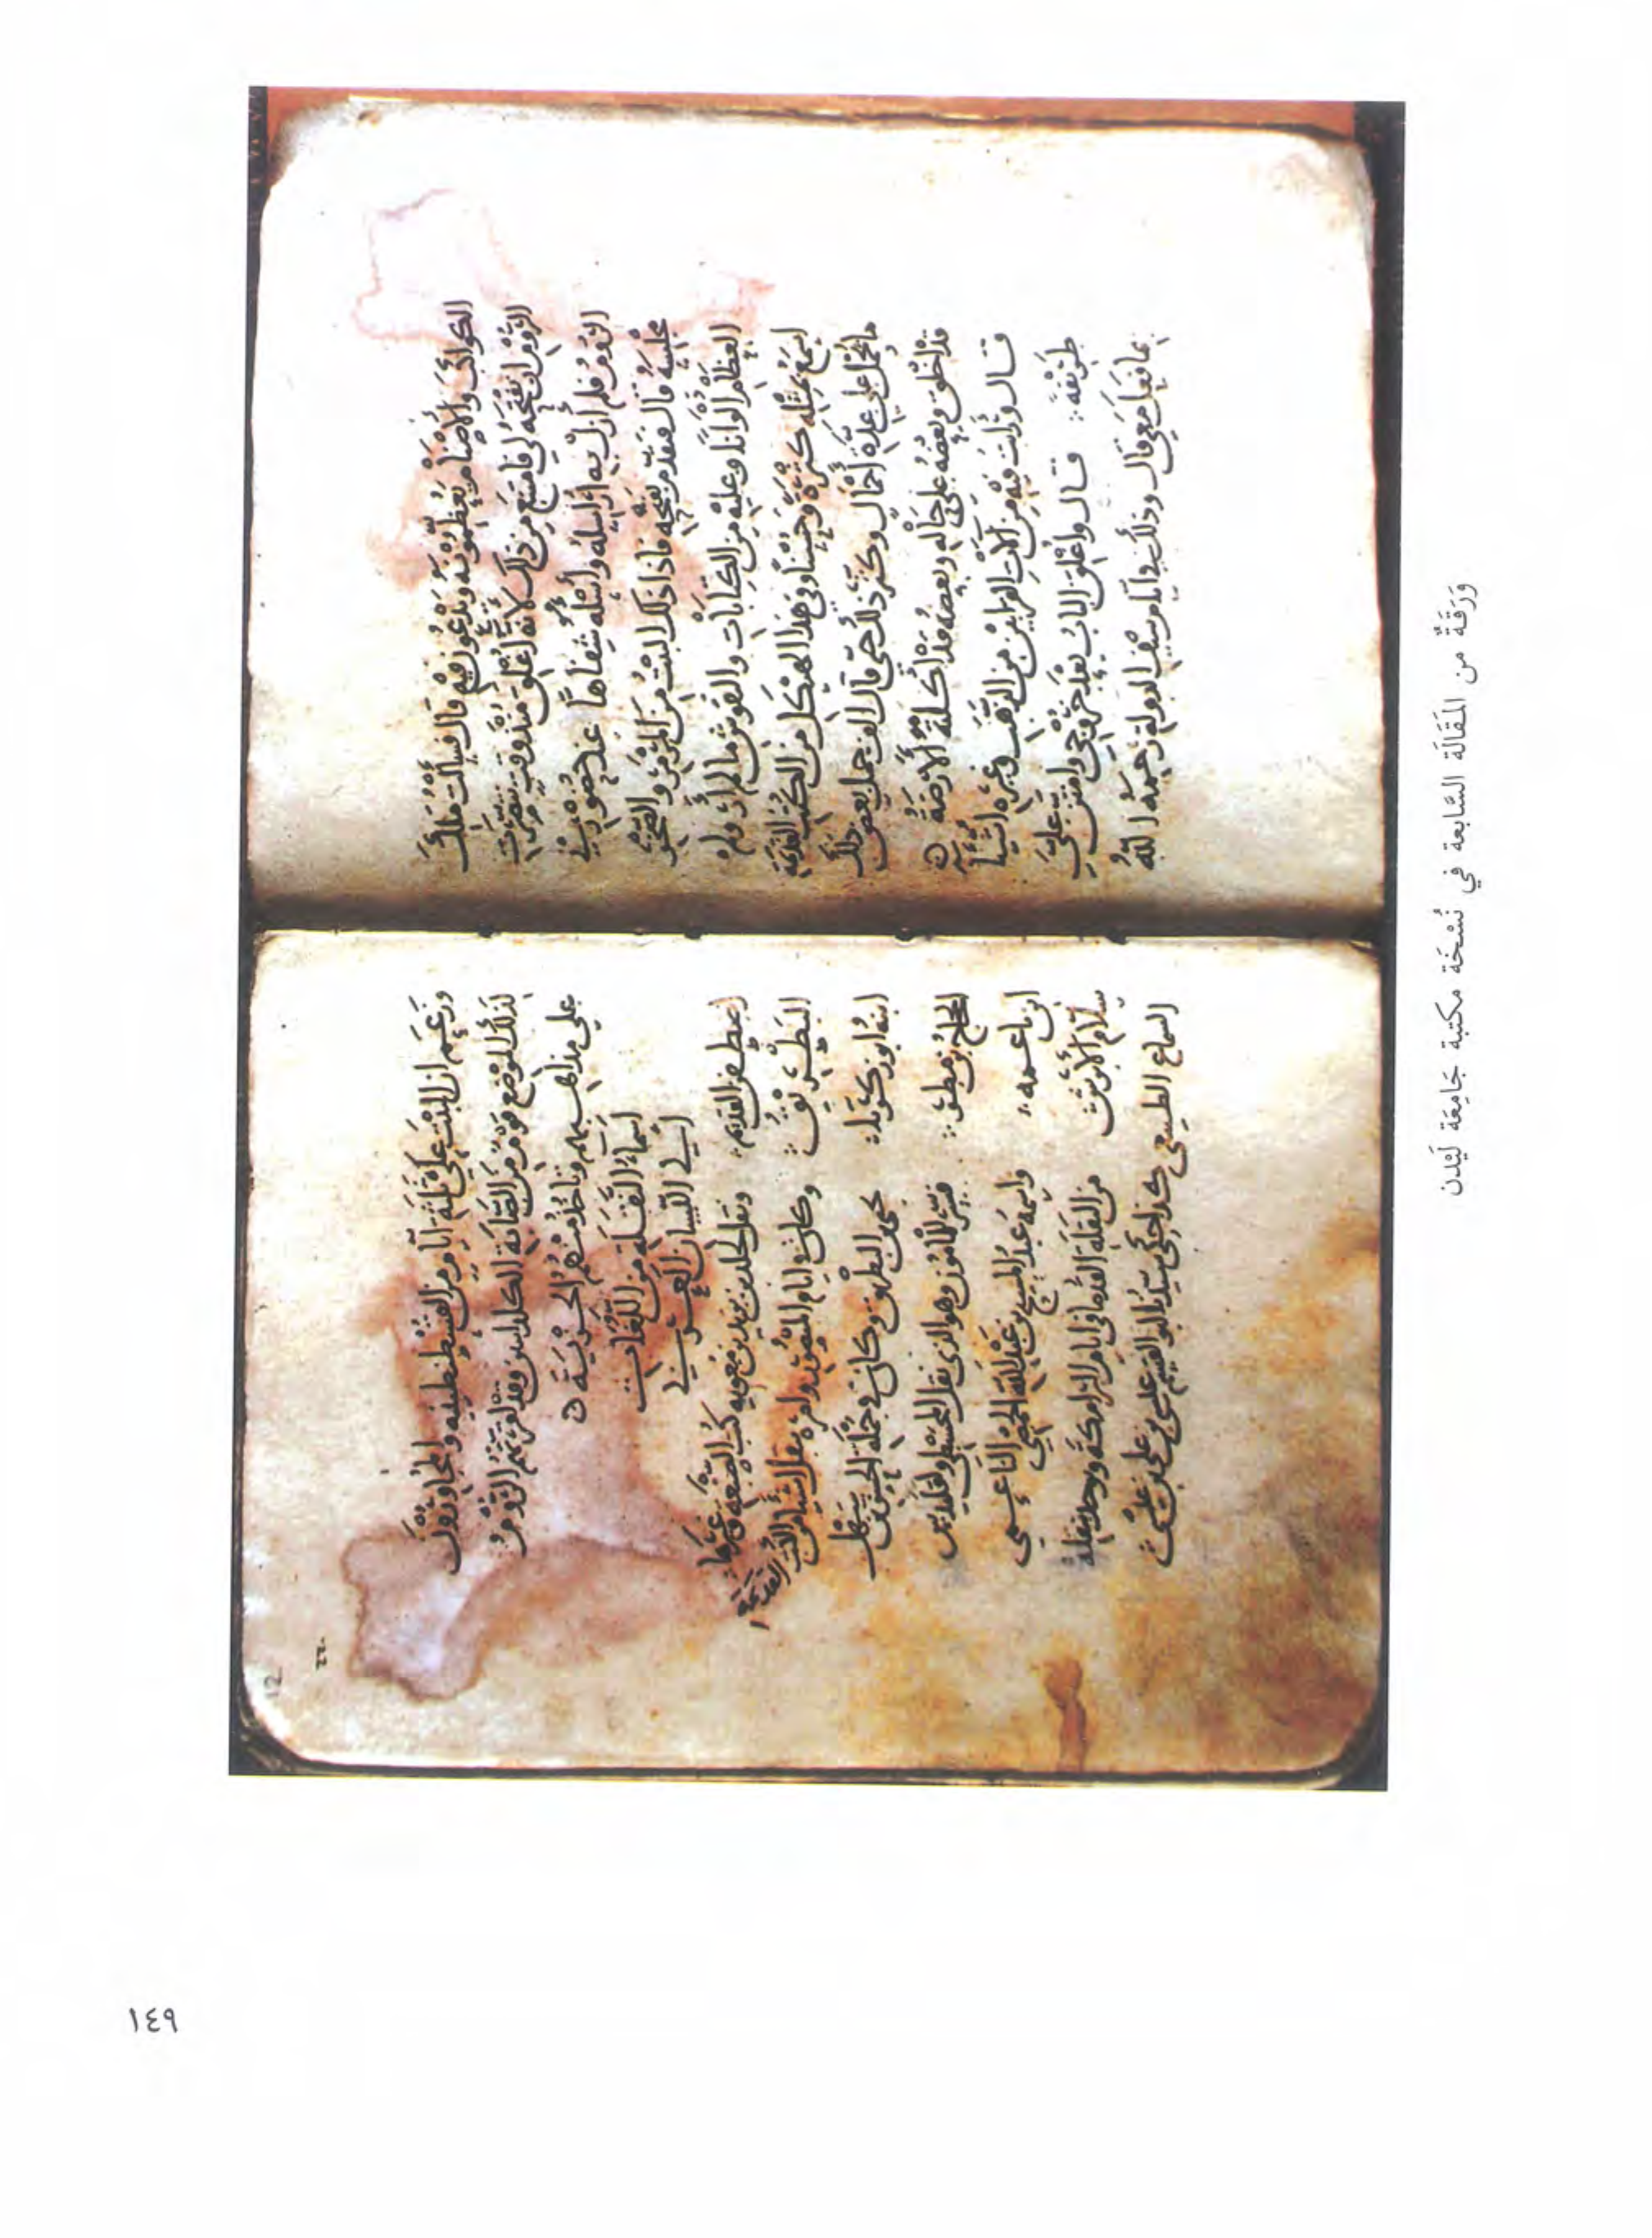 الكواكب والاصنام يعظمونه ويدعون فيه قال فسألت ملك
الروم ان يفتحه لي فامتنع من ذلك لأنه أغلق منذ وقت تنصرت
الروم فلم ازل به اراسله واسئله شفاها عند حضوري
مجلسه قال فتقدم بفتحه فاذا ذلك البيت من المرمر والصخر
العظام الوانا وعليه من الكتابات والنقوش ما لم أر ولم
اسمع بمثله كثرة وحسنا وفي هذا الهيكل من الكتب القديمة
ما يحمل على عدة اجمال وكثر ذلك حتى قال الف جمل بعض ذلك
قد اخلق وبعضه على حاله وبعضه قد اكلته الارضة
قال ورأيت فيه من آلات القرابين من الذهب وغيره اشياء
طريفة قال واغلق الباب بعد خروجي وامتن علي
بما فعل معي قال وذلك في ايام سيف الدولة رحمه الله
وزعم ان البيت على ثلثة ايام من القسطنطينيه والمجاورون
لذلك الموضع قوم من الصابة الكلدانيين وقد اقرتهم الروم
على مذاهبهم وتأخذ منهم الجزية
اسماء النقلة من اللغات
الى اللسان العربي
اصطفن القديم ونقل لخالد بن يزيد بن معويه كتب الصنعه وغيرها
البطريق وكان في ايام المنصور وامره بنقل اشياء من الكتب القديمة
ابنه ابو زكريا يحيى بن البطريق وكان في جملة الحسن بن سهل
الحجاج بن مطر فسر للمأمون وهو الذي نقل المجسطي واقليدس
ابن ناعمه واسمه عبد المسيح بن عبد الله الحمصي الناعمي
سلام الأبرش من النقلة القدماء في ايام البرامكة ويوجد بنقله
السماع الطبيعي كذا حكى سيدنا ابو القسم عيسى بن علي بن عيسى
وَرَقَةٌ من المَقَالَة السَّابعة في نُسْخَة مكتبة جَامِعَة لَيْدن
١٤٩